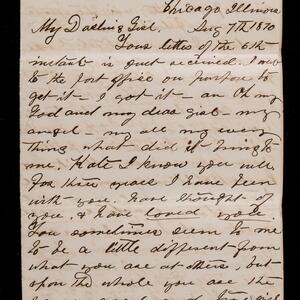 Chicago Illinois
My Darling Girl. Aug 7th 1870
Your letter of the 6th
instant is just received. I went
to the post office on purpose to
get it - I got it - an Oh my
God and my dear girl - my
angel - my all my every
thing what did it bring to
me. Kate I know you well
For three years I have been
with you. have thought of
you, & have loved you.
You sometimes seem to me
to be a little different from
what you are at others, but
upon the whole you are the